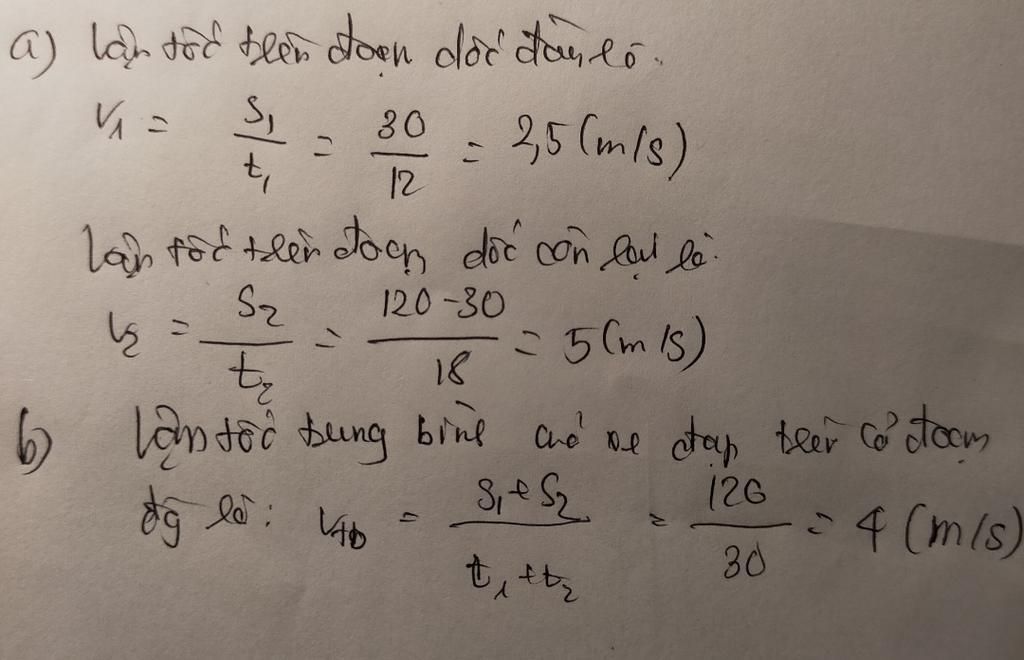 a) Vận tốc trên đoạn dốc đầu là.
V₁ = S₁/t₁ = 30/12 = 2,5 (m/s)
Vận tốc trên đoạn dốc còn lại là.
V₂ = S₂/t₂ = 120-30/18 = 5 (m/s)
b) Vận tốc trung bình của xe đạp trên cả đoạn
đg là: Vtb = S₁+S₂/t₁+t₂ = 120/30 = 4 (m/s)